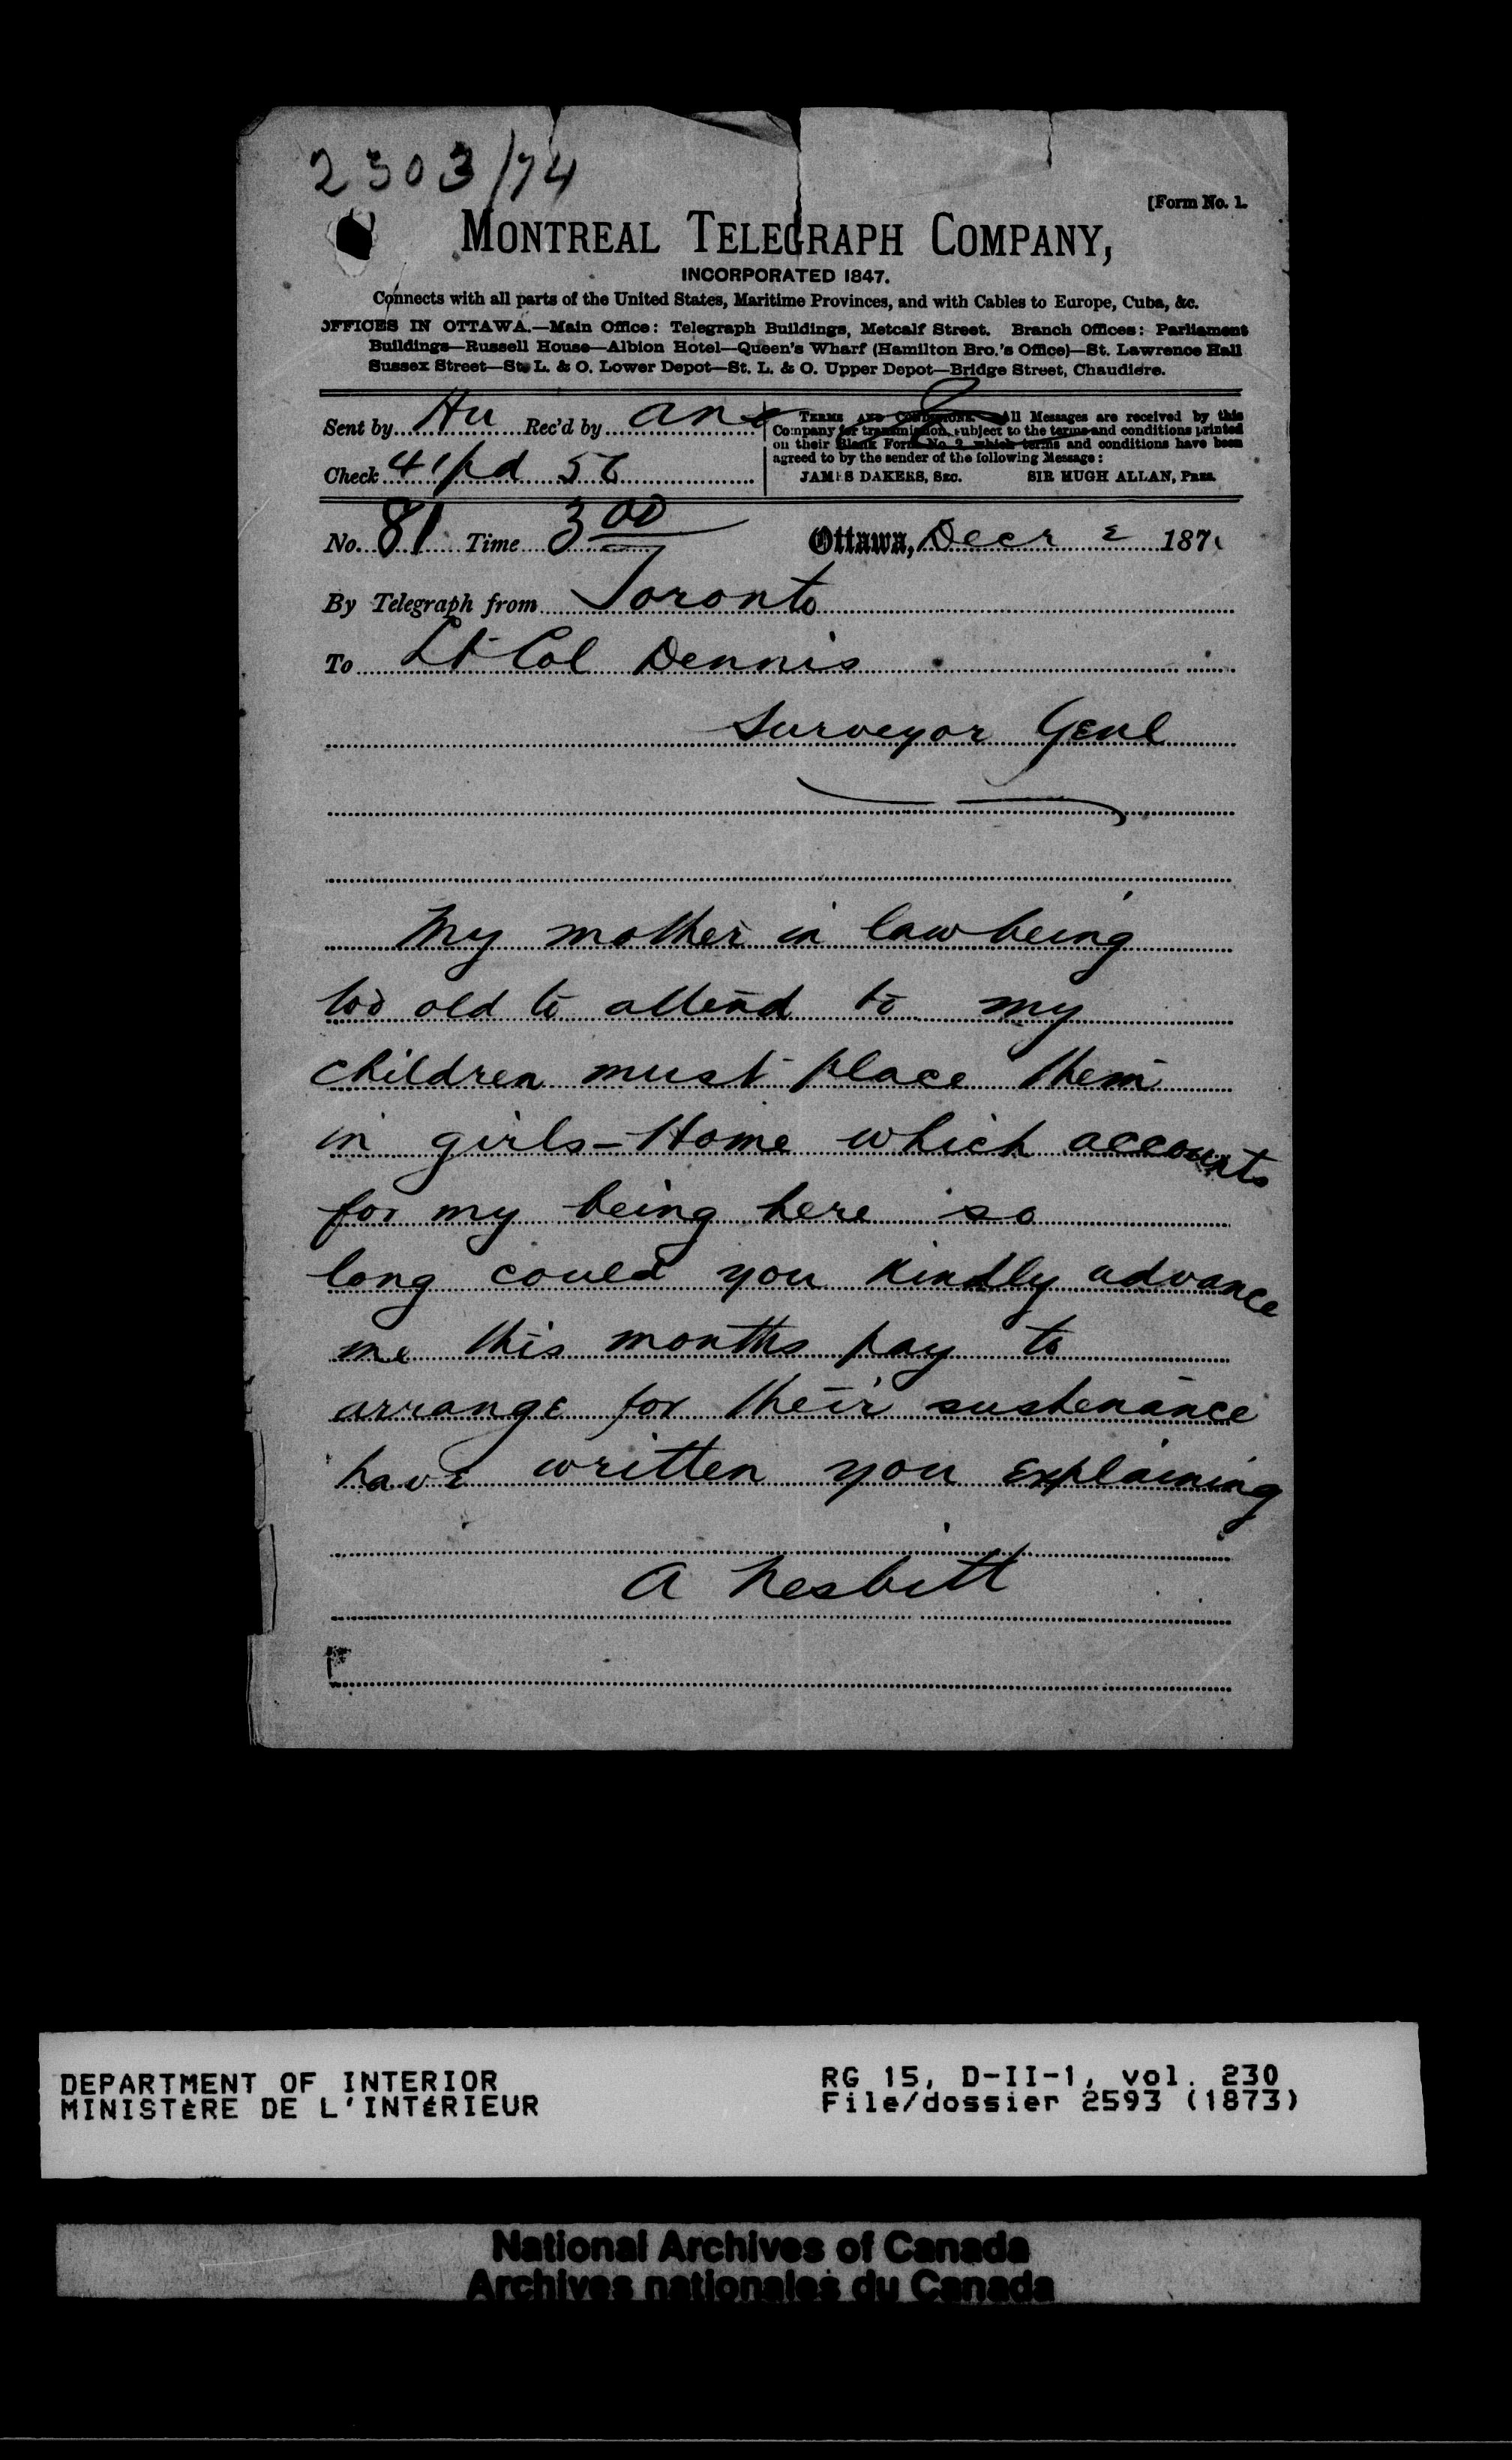 2303/74
[Form No. 1.
MONTREAL TELEGRAPH COMPANY,
INCORPORATED 1847.
Connects with all parts of the United States, Maritime Provinces, and with Cables to Europe, Cuba, &c.
OFFICES IN OTTAWA.—Main Office: Telegraph Buildings, Metcalf Street. Branch Offices: Parliament
Buildings—Russell House—Albion Hotel—Queen's Wharf (Hamilton Bro.'s Office)—St. Lawrence Hall
Sussex Street—St. L. & O. Lower Depot—St. L. & O. Upper Depot—Bridge Street, Chaudiere.
Sent by Hu Rec'd by
Check 41 pd 56
TERMS AND CONDITIONS. All Messages are received by this
Company for transmission, subject to the terms and conditions printed
on their Blank Form No. 2, which terms and conditions have been
agreed to by the sender of the following Message:
JAMES DAKERS, SEC. SIR HUGH ALLAN, PRES.
No. 81 Time 3 00 Ottawa, Decr 2 187
By Telegraph from Toronto
To Lt Col Dennis
Surveyor Genl
My mother in law being
too old to attend to my
children must place them
in girls-Home which accounts
for my being here so
long could you kindly advance
me this months pay to
arrange for their sustenance
have written you explaining
A Nesbitt
DEPARTMENT OF INTERIOR
MINISTÈRE DE L'INTÉRIEUR
RG 15, D-II-1, vol. 230
File/dossier 2593 (1873)
National Archives of Canada
Archives nationales du Canada